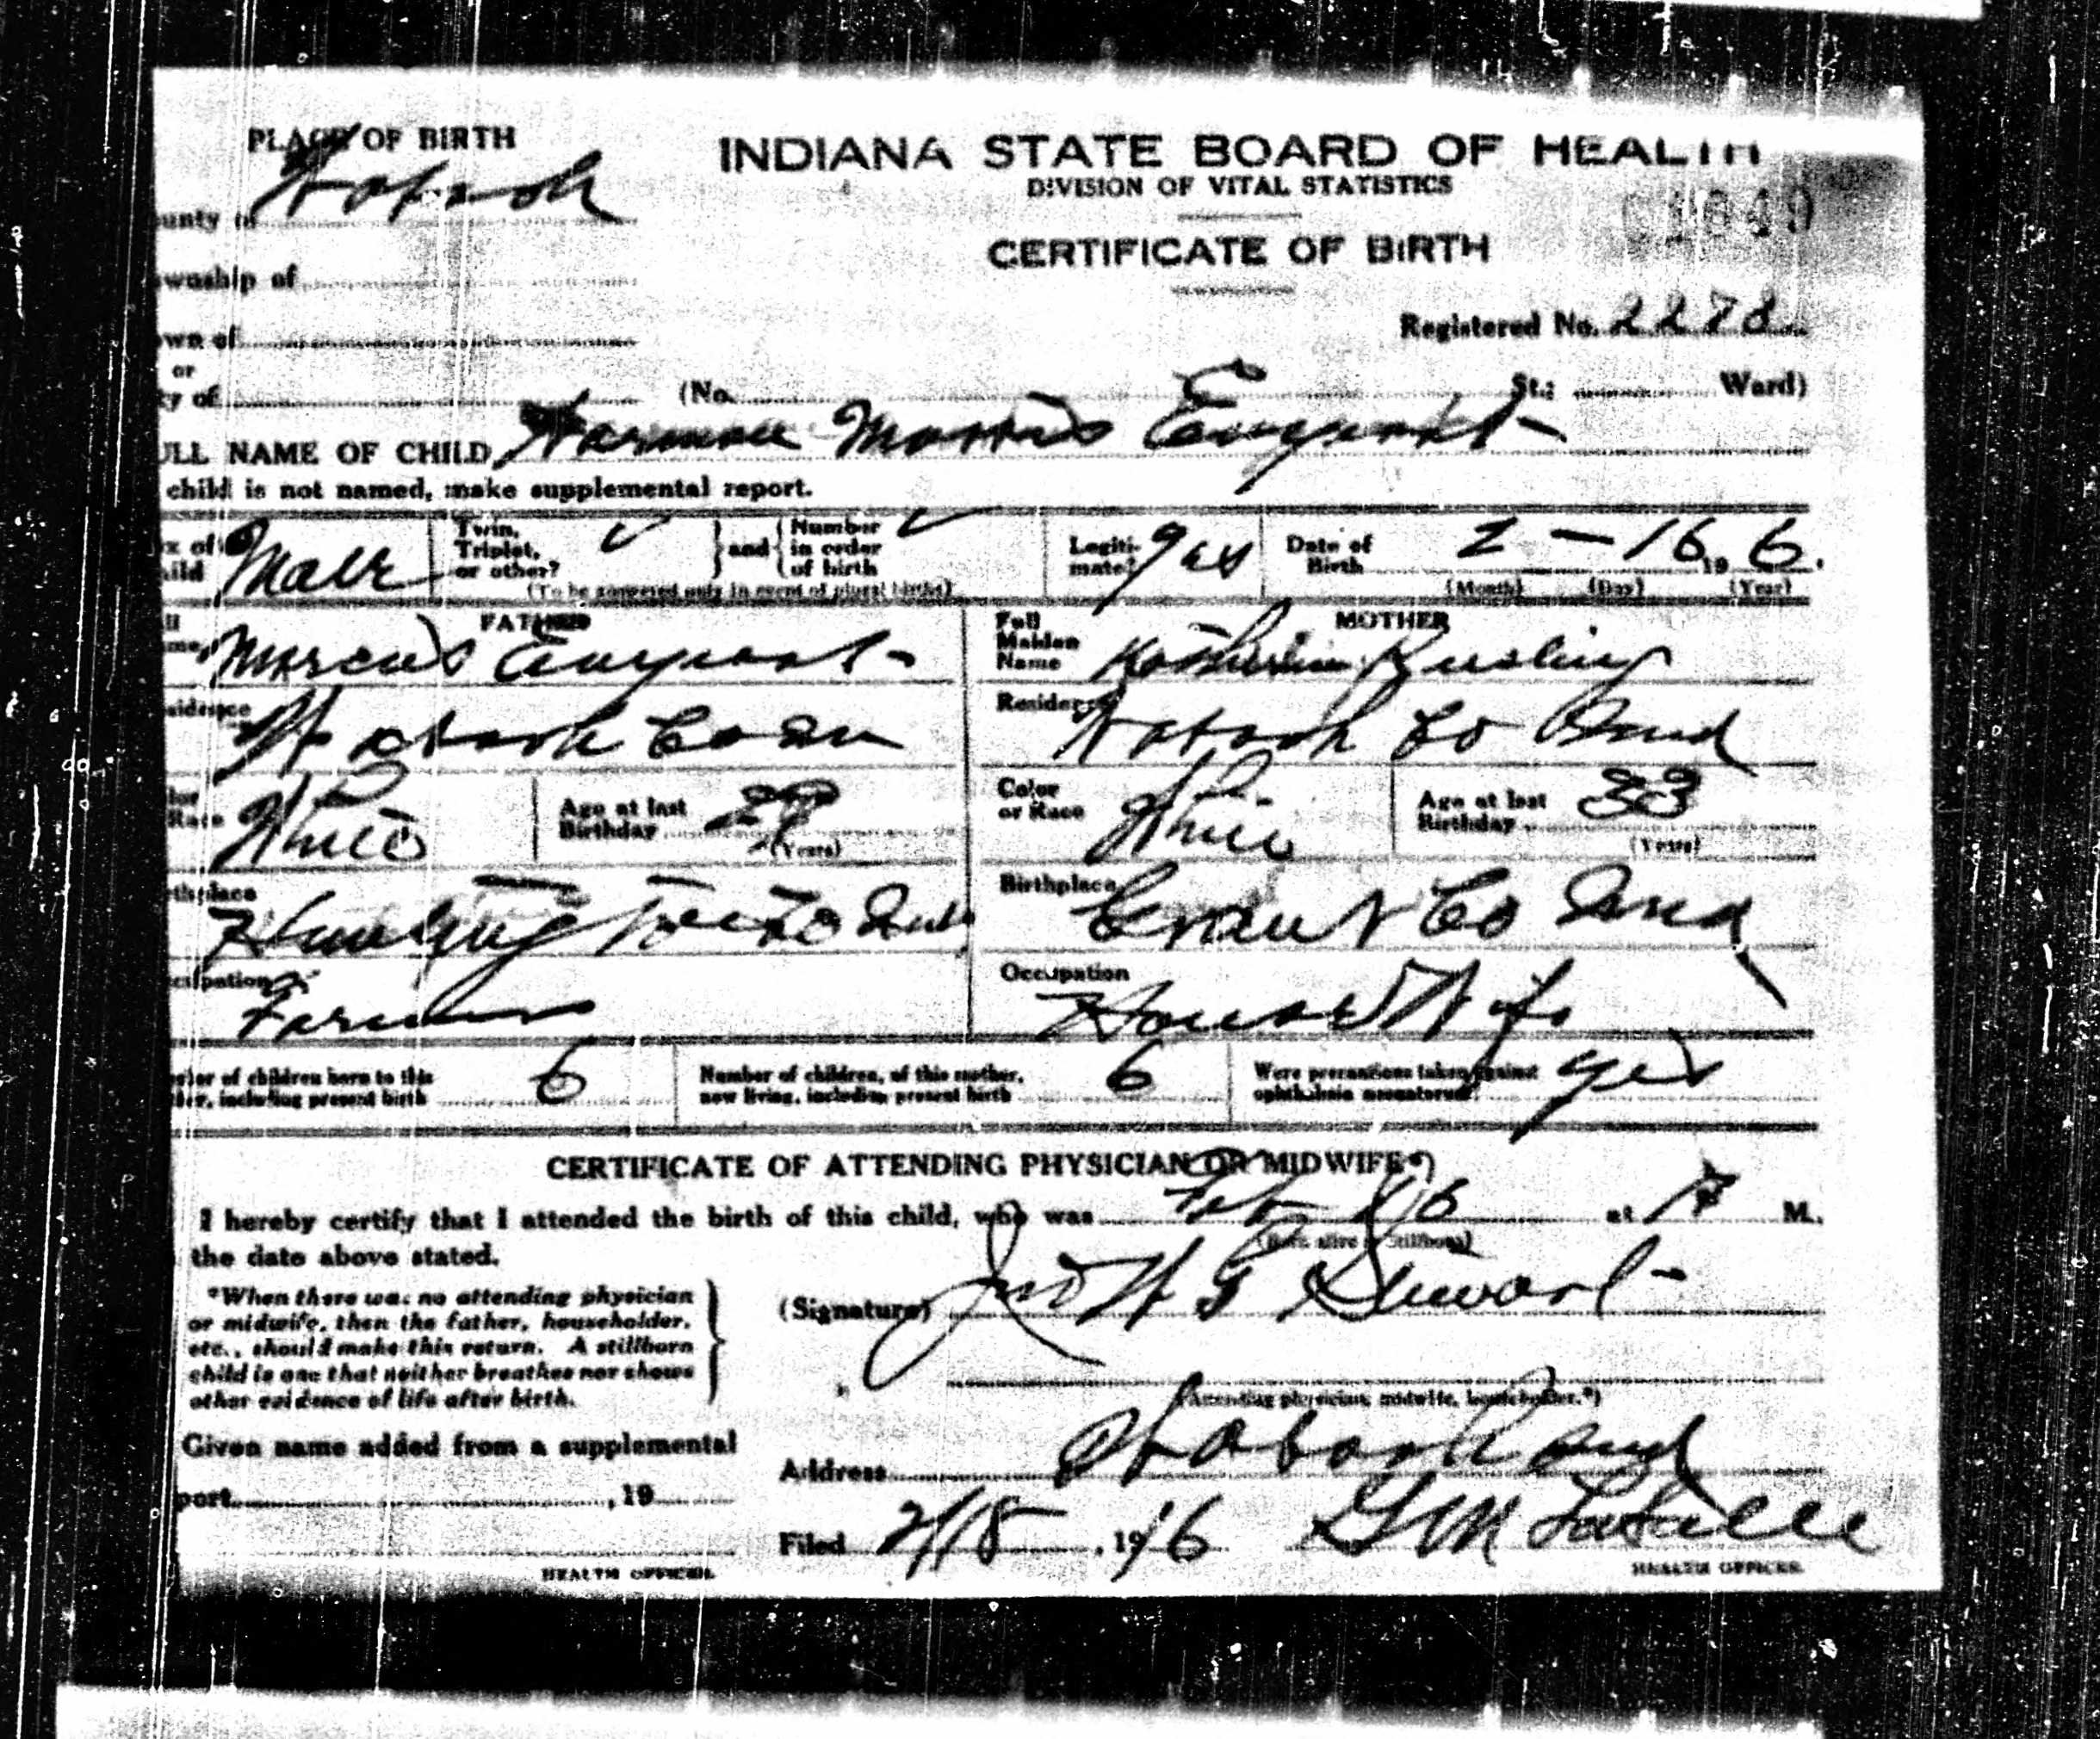 PLACE OF BIRTH
INDIANA STATE BOARD OF HEALTH
DIVISION OF VITAL STATISTICS
unty of Wabash
CERTIFICATE OF BIRTH
wnship of
Registered No. 2278
wn of
or
ty of (No. St.; Ward)
ULL NAME OF CHILD Morris
child is not named, make supplemental report.
x of ild Male
Twin, Triplet, or other? and Number in order of birth
(To be answered only in event of plural births)
Legitimate? yes
Date of Birth 2 - 16, 19 6.
(Month) (Day) (Year)
FATHER
Marcus
MOTHER
Full Maiden Name
sidence Wabash Co
Residence Wabash Co Ind
lor Race White
Age at last Birthday 29
(Years)
Color or Race White
Age at last Birthday 33
(Years)
thplace Co Ind
Birthplace Grant Co Ind
cupation Farmer
Occupation House Wife
ber of children born to this
er, including present birth 6
Number of children, of this mother,
now living, including present birth 6
Were precautions taken against
ophthalmia neonatorum? yes
CERTIFICATE OF ATTENDING PHYSICIAN OR MIDWIFE*)
I hereby certify that I attended the birth of this child, who was Feb at M.
(Born alive or Stillborn)
the date above stated.
*When there was no attending physician
or midwife, then the father, householder,
etc., should make this return. A stillborn
child is one that neither breathes nor shows
other evidence of life after birth.
(Signature)
(Attending physician, midwife, householder.*)
Given name added from a supplemental
port , 19
Address Wabash Ind
Filed 2/18, 1916 G M
HEALTH OFFICER.
HEALTH OFFICER.